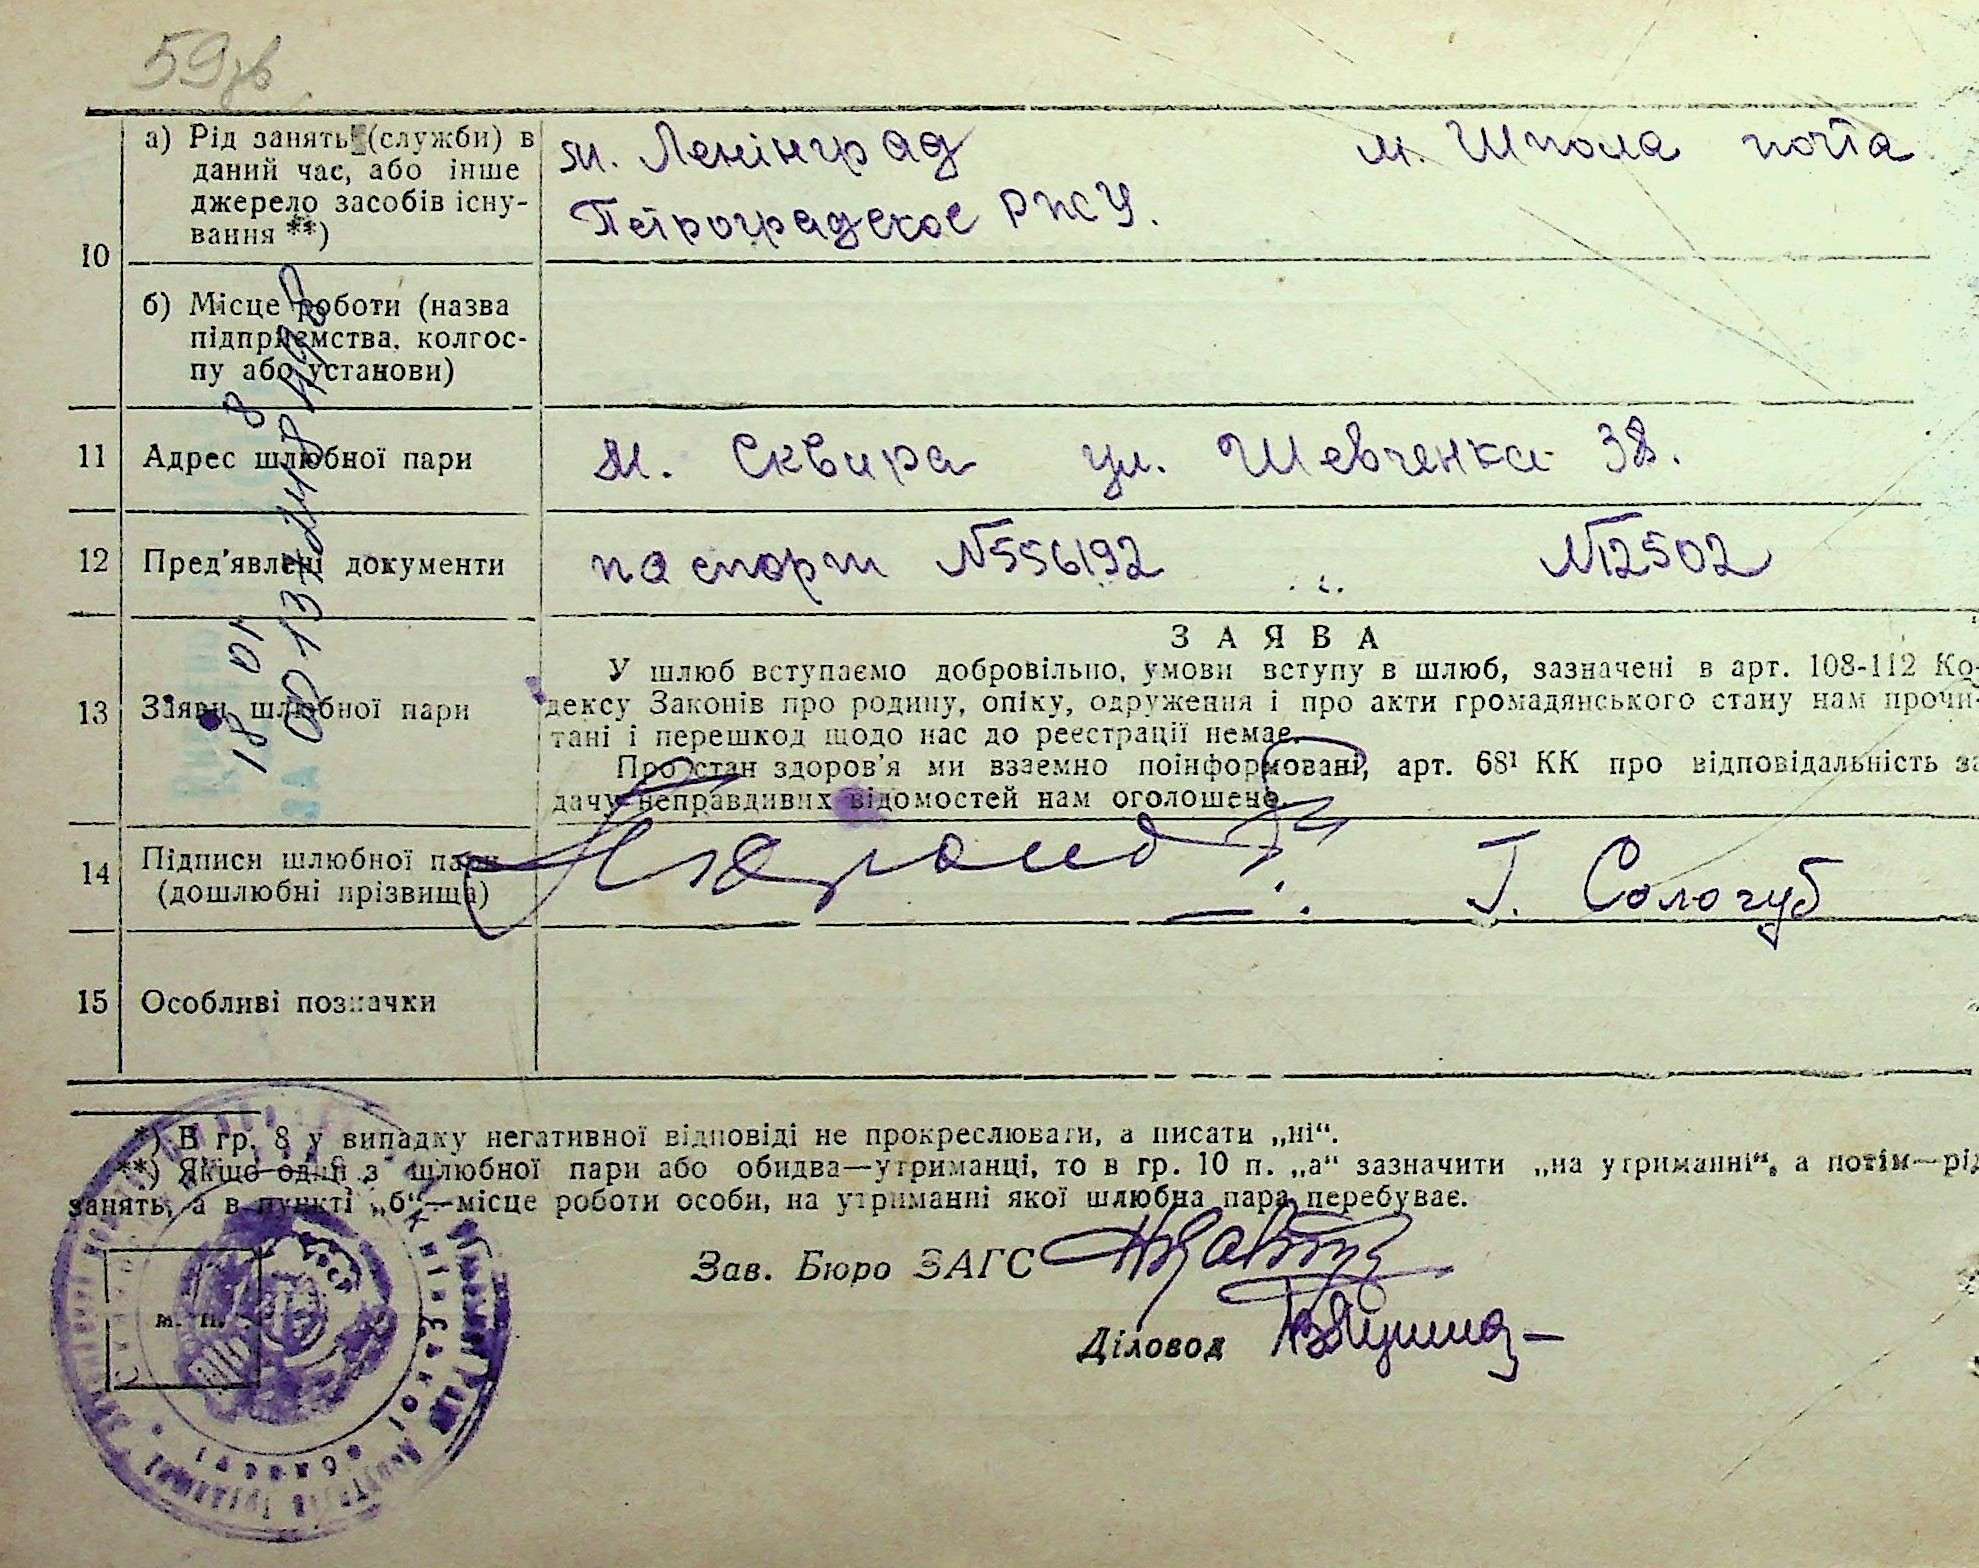 59зв
10
а) Рід занять (служби) в
даний час, або інше
джерело засобів існу-
вання **)
м. Ленінград
Петроградское РПСУ.
м. Шпола почта
б) Місце роботи (назва
підприємства, колгос-
пу або установи)
11 Адрес шлюбної пари
м. Сквира ул. Шевченка 38.
12 Пред'явлені документи
паспорт №556192 №12502
13 Заяви шлюбної пари
ЗАЯВА
У шлюб вступаємо добровільно, умови вступу в шлюб, зазначені в арт. 108-112 Ко-
дексу Законів про родину, опіку, одруження і про акти громадянського стану нам прочи-
тані і перешкод щодо нас до реєстрації немає.
Про стан здоров'я ми взаємно поінформовані, арт. 68¹ КК про відповідальність за
дачу неправдивих відомостей нам оголошено.
14 Підписи шлюбної пари
(дошлюбні прізвища)
Г. Сологуб
15 Особливі позначки
*) В гр. 8 у випадку негативної відповіді не прокреслювати, а писати „ні“.
**) Якщо один з шлюбної пари або обидва—утриманці, то в гр. 10 п. „а“ зазначити „на утриманні“, а потім—рід
занять, а в пункті „б“—місце роботи особи, на утриманні якої шлюбна пара перебуває.
Зав. Бюро ЗАГС
Діловод
м. п.
УРСР
Київської
області
18 01 8